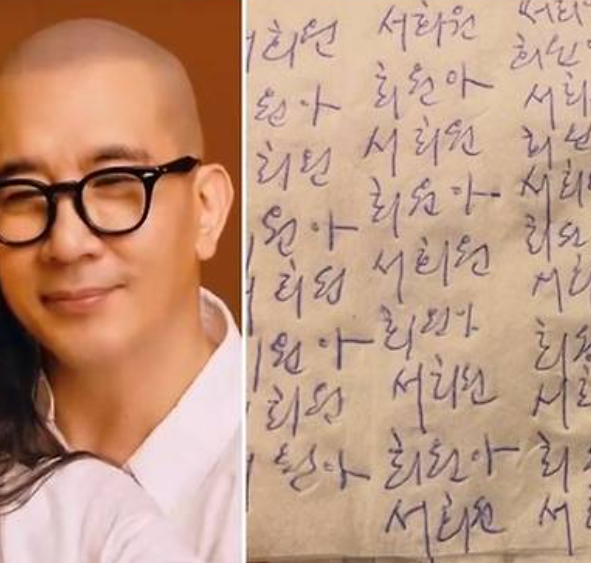 희원
원아
희원
원아
희원
원아
희원
원아
서희원
희원아
서희원
희원아
서희원
희원아
서희원
희원아
서희원
서희
희원
서희
희원
서희
희원
서희
희원
서희
희
서